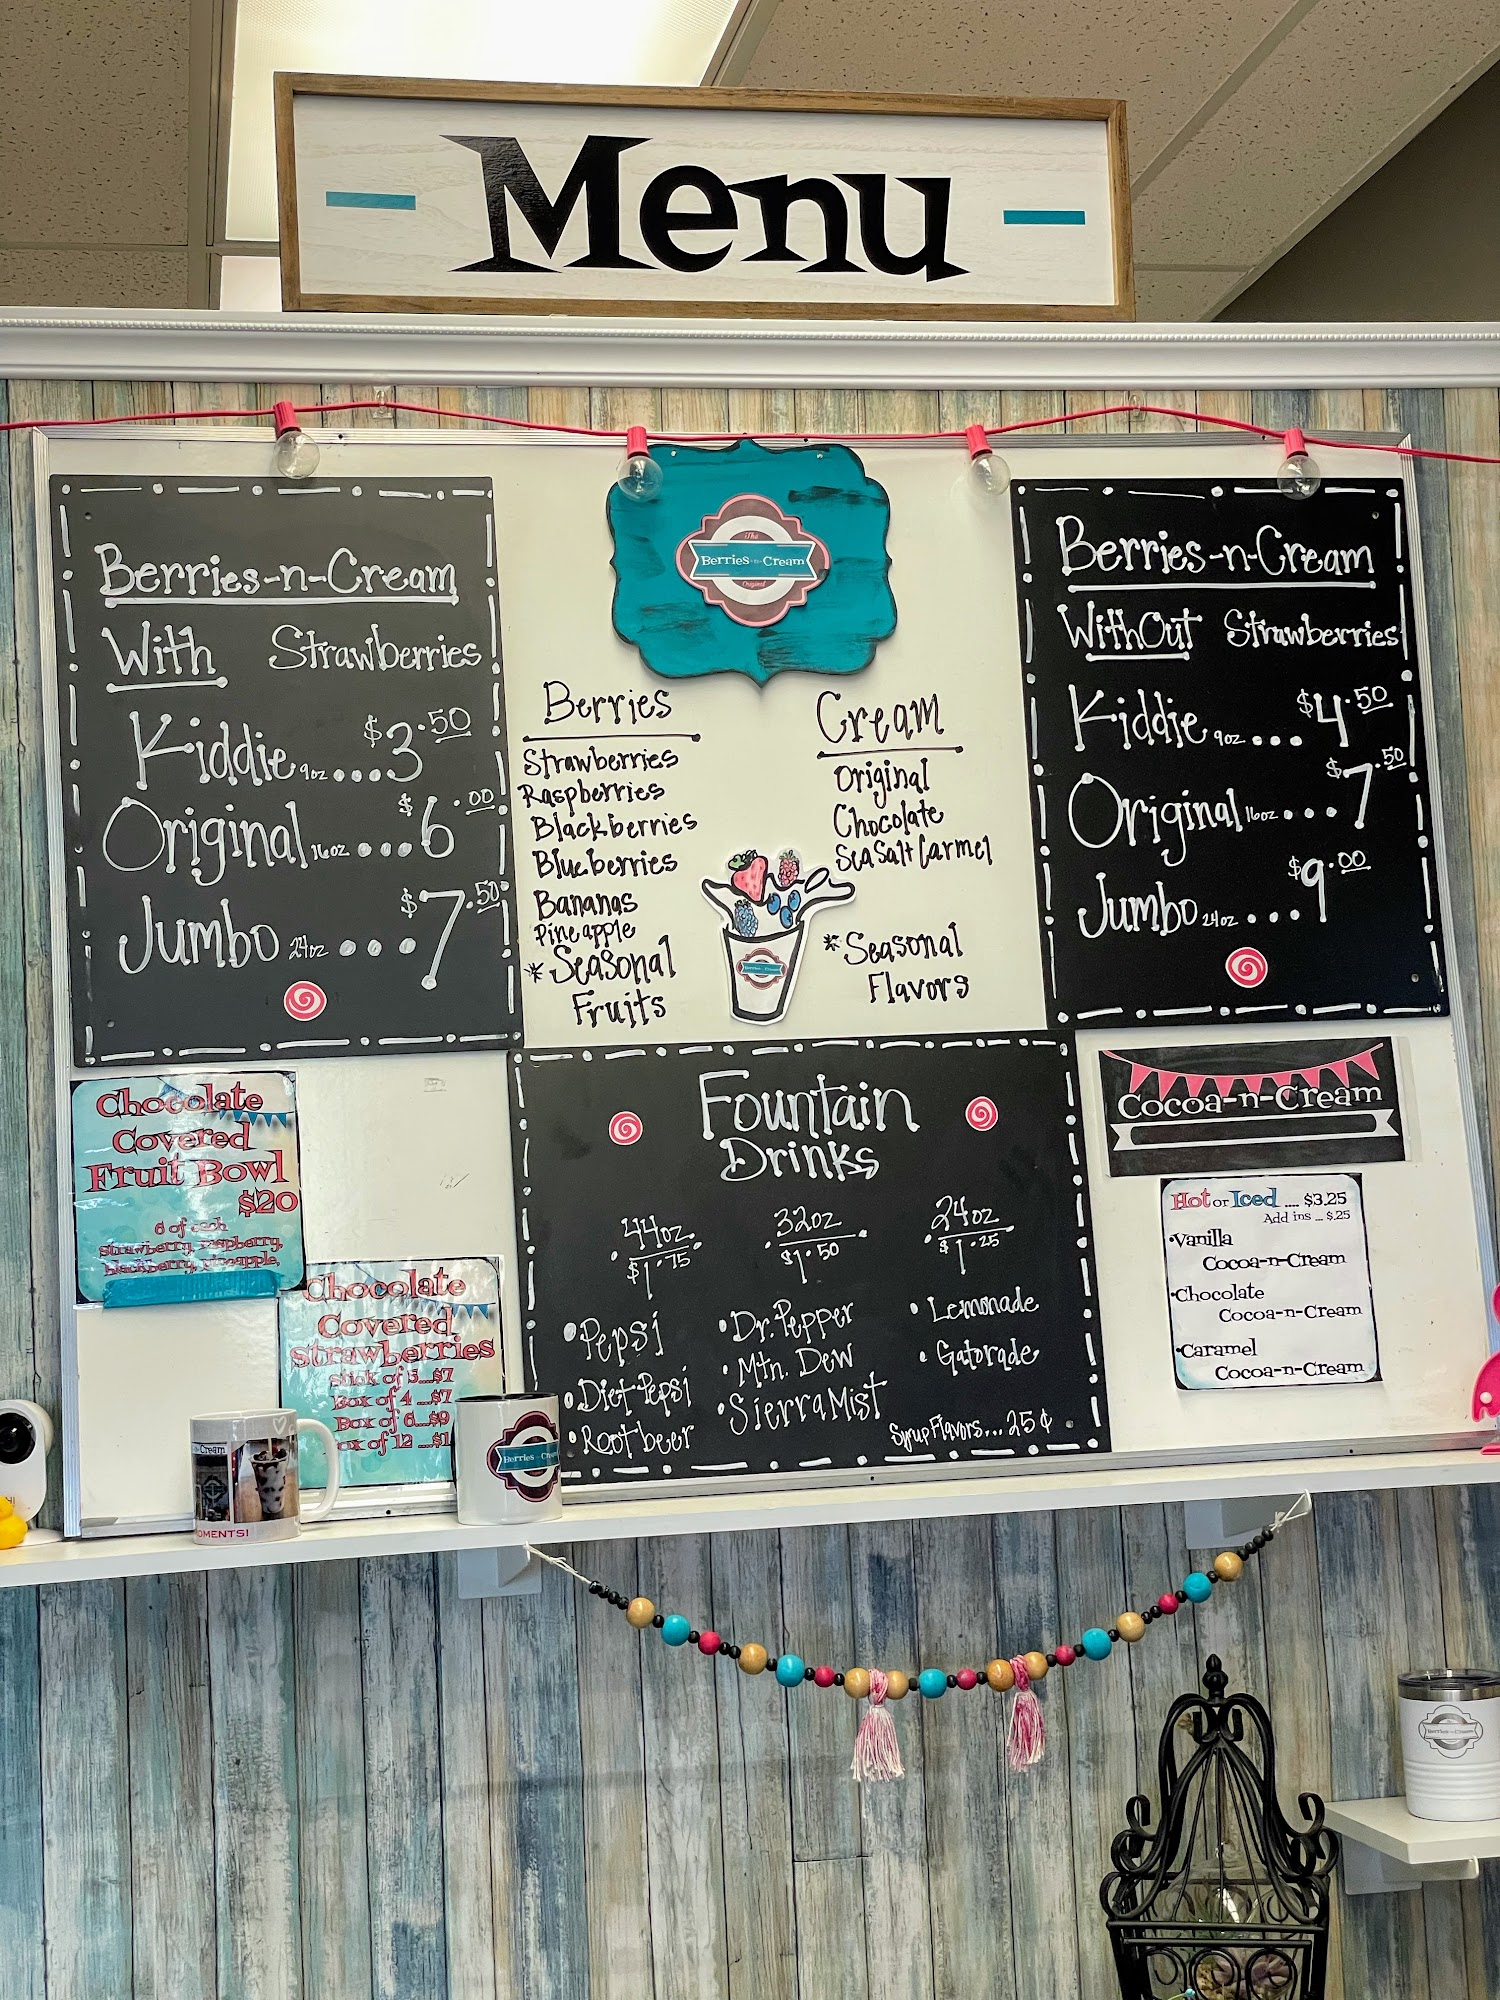 Menu
Berries-n-Cream
With Strawberries
Kiddie 9oz ... $3.50
Original 16oz .... $6.00
Jumbo 24oz .... $7.50
The
Berries-n-Cream
Original
Berries
Strawberries
Raspberries
Blackberries
Blueberries
Bananas
Pineapple
*Seasonal
Fruits
Cream
Original
Chocolate
Sea Salt Carmel
*Seasonal
Flavors
Berries-n-Cream
Berries-n-Cream
WithOut Strawberries
Kiddie 9oz ... $4.50
Original 16oz .... $7.50
Jumbo 24oz .... $9.00
Chocolate
Covered
Fruit Bowl
$20
6 of each
strawberry, raspberry,
blackberry, pineapple,
Chocolate
Covered
Strawberries
Stick of 3...$7
Box of 4 ...$7
Box of 6...$9
ox of 12 ....$1
Fountain
Drinks
44oz
$1.75
32oz
$1.50
24oz
$1.25
•Pepsi
•Diet Pepsi
•Rootbeer
•Dr. Pepper
•Mtn. Dew
•Sierra Mist
•Lemonade
•Gatorade
Syrup Flavors... 25¢
Cocoa-n-Cream
Hot or Iced .... $3.25
Add ins ... $.25
•Vanilla
Cocoa-n-Cream
•Chocolate
Cocoa-n-Cream
•Caramel
Cocoa-n-Cream
n-Cream
OMENTS!
Berries-n-Cream
Berries-n-Cream